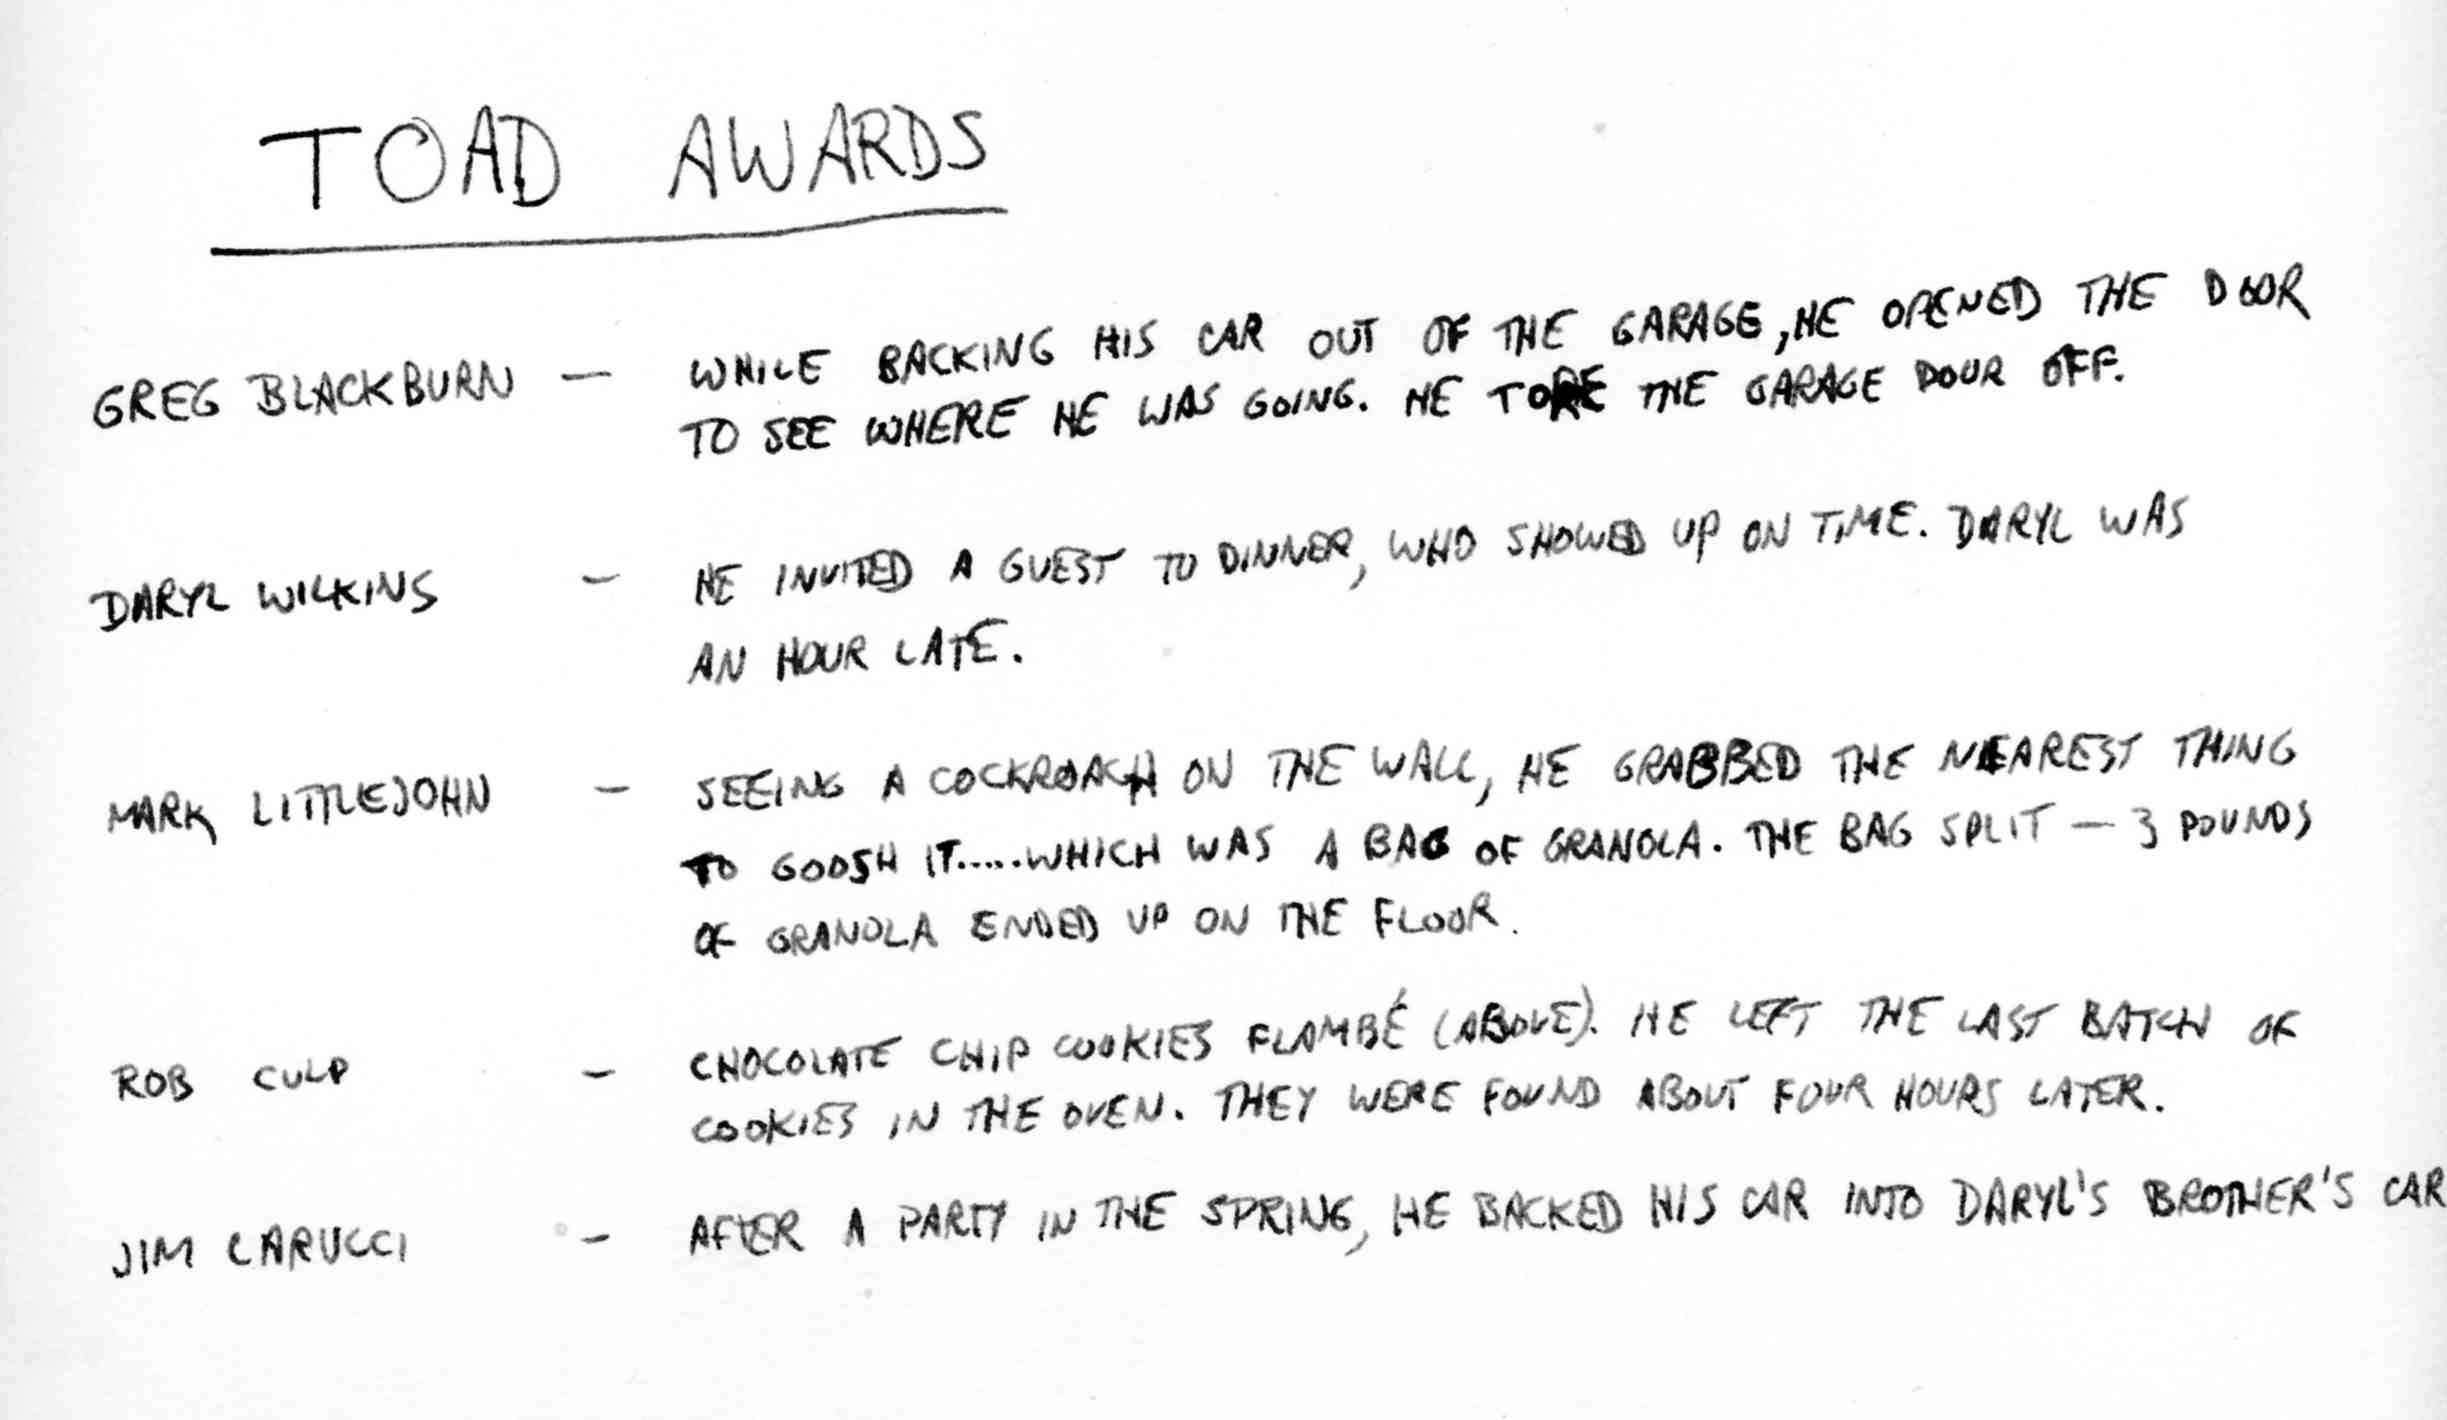 TOAD AWARDS
GREG BLACKBURN — WHILE BACKING HIS CAR OUT OF THE GARAGE, HE OPENED THE DOOR
TO SEE WHERE HE WAS GOING. HE TORE THE GARAGE DOOR OFF.
DARYL WILKINS — HE INVITED A GUEST TO DINNER, WHO SHOWED UP ON TIME. DARYL WAS
AN HOUR LATE.
MARK LITTLEJOHN — SEEING A COCKROACH ON THE WALL, HE GRABBED THE NEAREST THING
TO GOOSH IT.....WHICH WAS A BAG OF GRANOLA. THE BAG SPLIT — 3 POUNDS
OF GRANOLA ENDED UP ON THE FLOOR.
ROB CULP — CHOCOLATE CHIP COOKIES FLAMBÉ (ABOVE). HE LEFT THE LAST BATCH OF
COOKIES IN THE OVEN. THEY WERE FOUND ABOUT FOUR HOURS LATER.
JIM CARUCCI — AFTER A PARTY IN THE SPRING, HE BACKED HIS CAR INTO DARYL'S BROTHER'S CAR